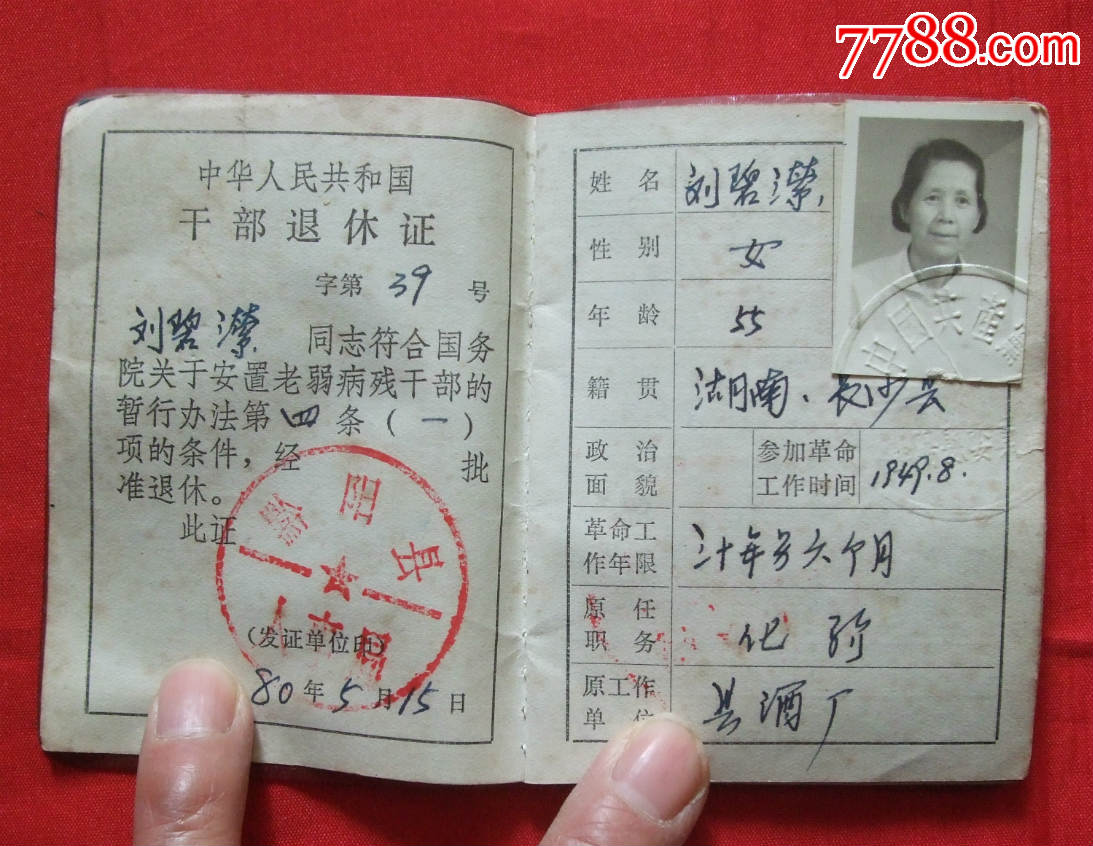 7788.com
中华人民共和国
干部退休证
字第 39 号
刘碧潆 同志符合国务
院关于安置老弱病残干部的
暂行办法第四条(一)
项的条件,经 批
准退休。
此证
黔阳县
人事局
(发证单位印)
80年5月15日
姓名 刘碧潆
性别 女
年龄 55
籍贯 湖南、长沙县
政治面貌
参加革命工作时间 1949.8.
革命工作年限 三十年另六个月
原任职务 化验
原工作单位 县酒厂
中国共产